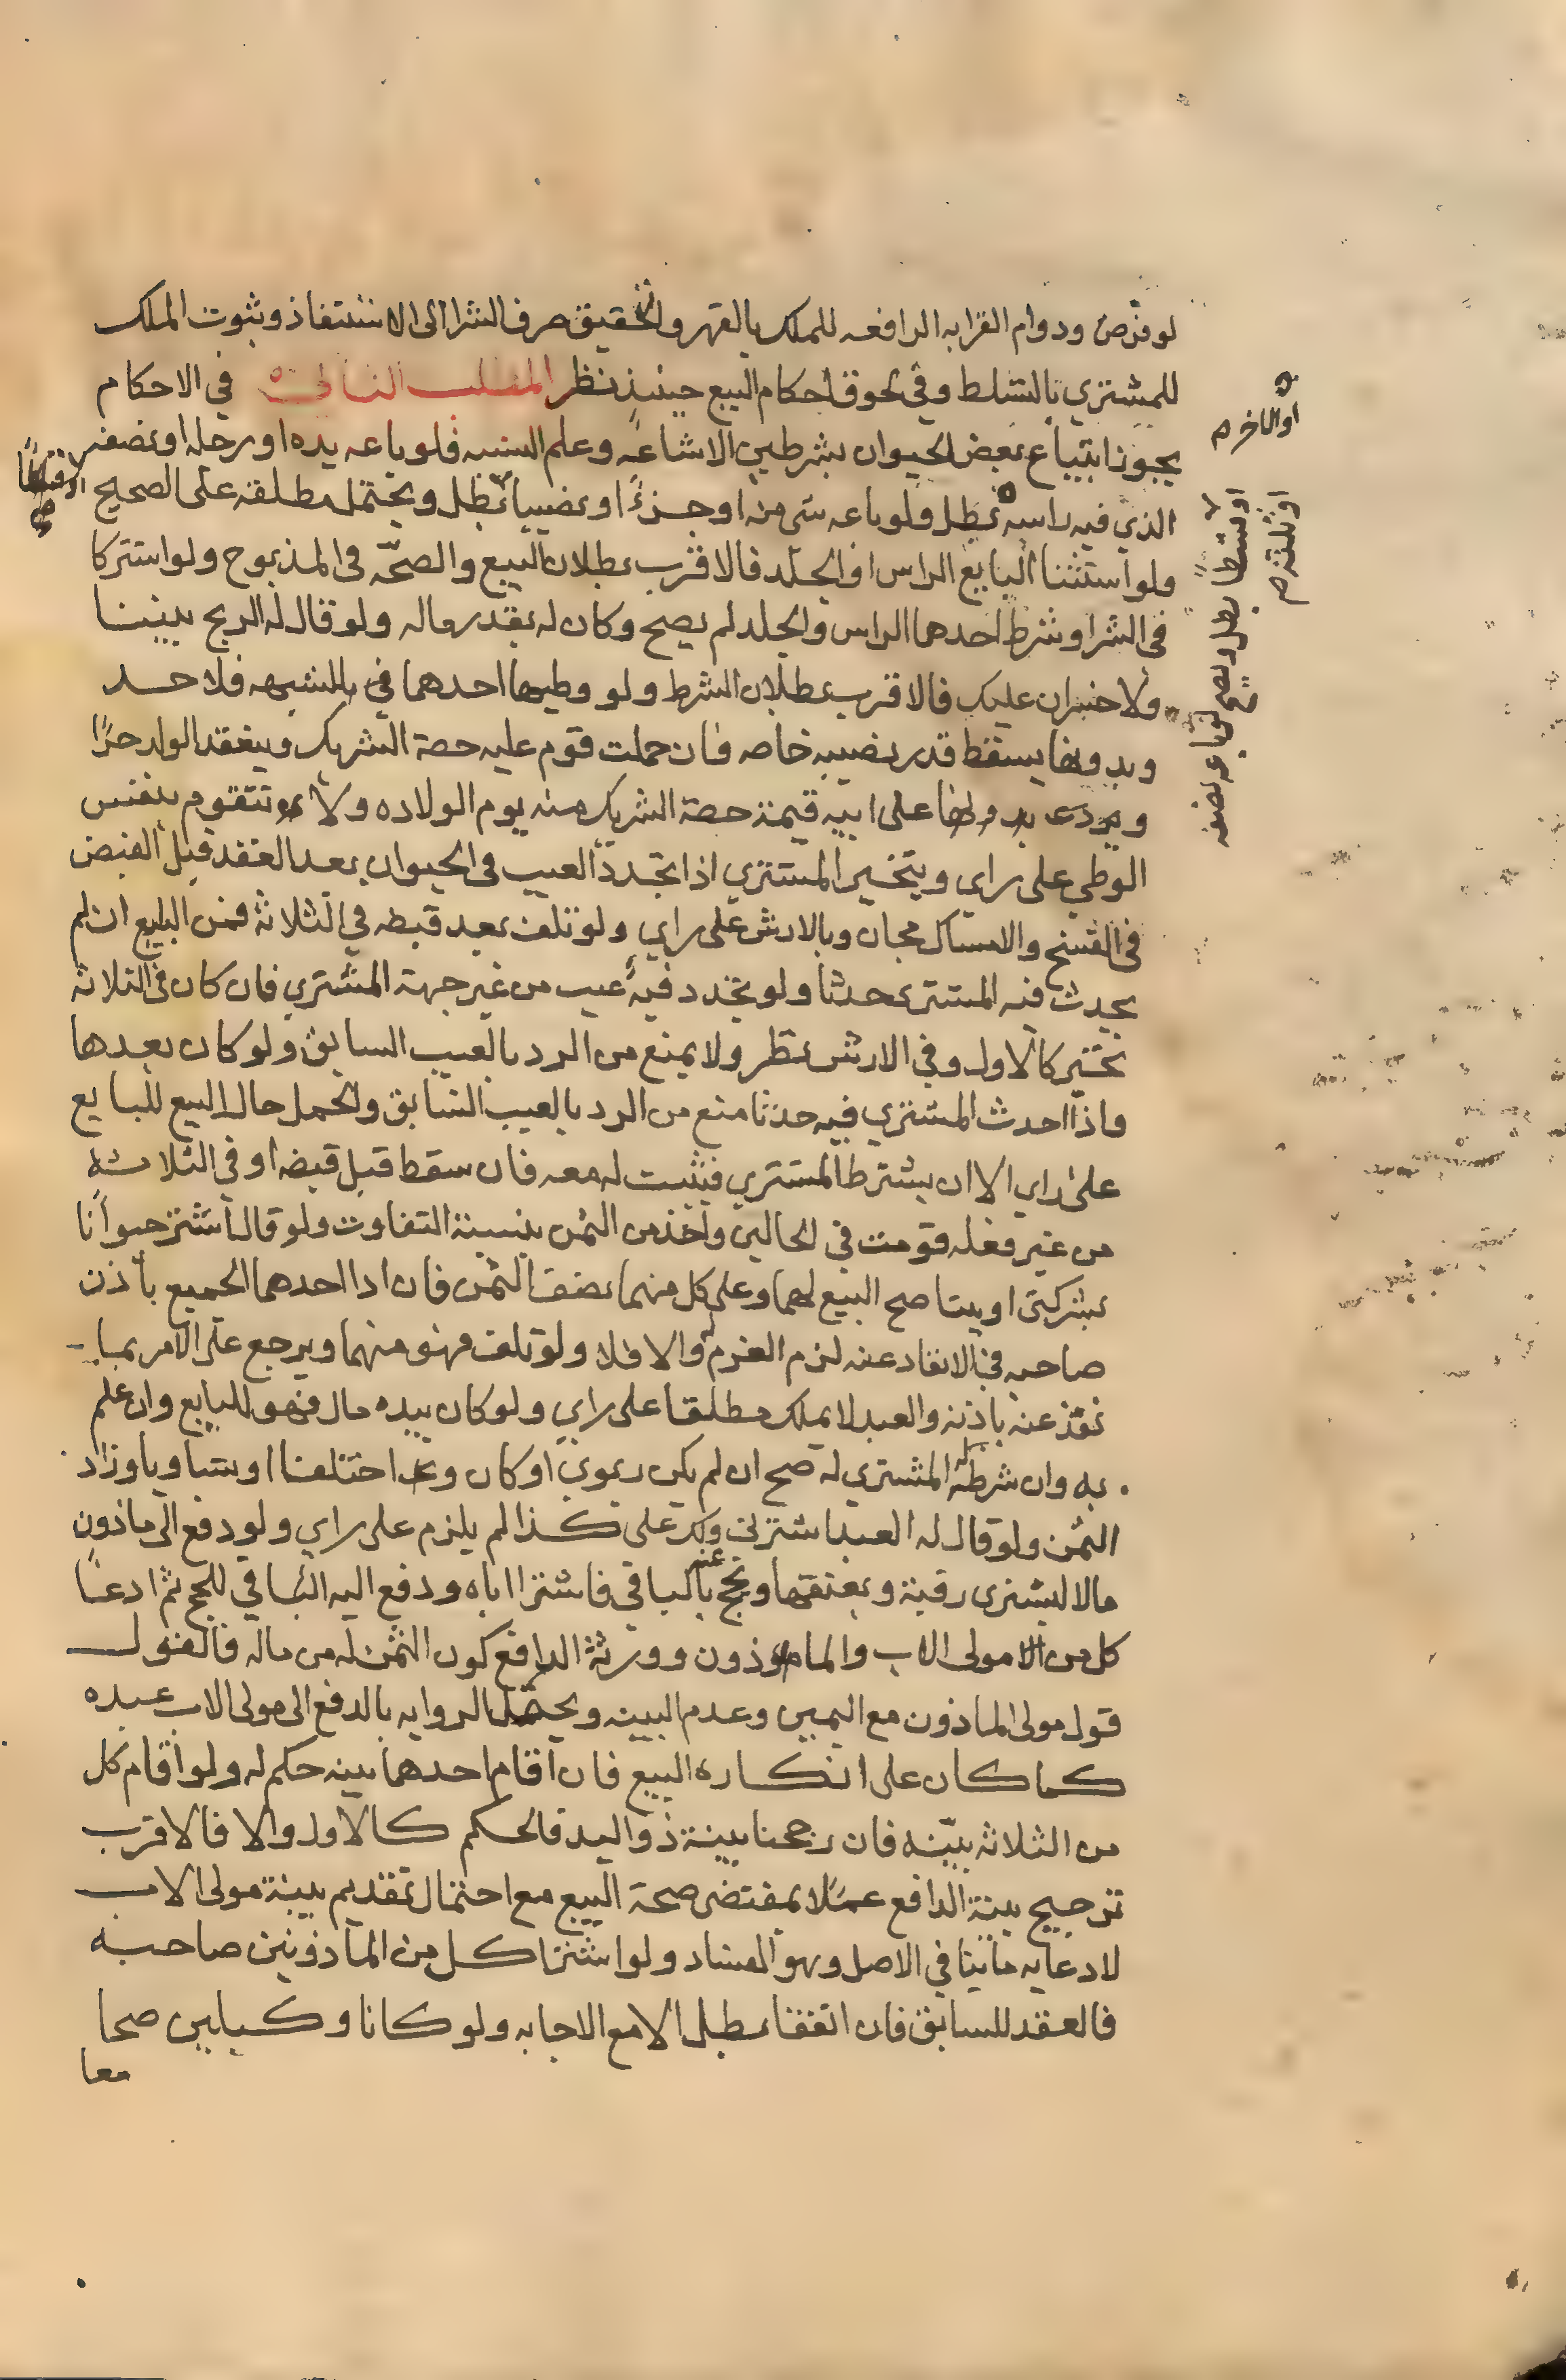 لو فرض ودوام القرابه الرافعه للملك بالقهر والتحقيق صرف الشرا الى الاستنقاذ وثبوت الملك
للمشتري بالتسلط وفي لحوق احكام البيع حينيذ نظر المطلب الثاني في الاحكام
يجوز ابتياع بعض الحيوان بشرطين الاشاعه وعلم النسبه فلو باعه يده او رجله او نصفه
الذي فيه راسه بطل ولو باعه شي منه او جزءً او نصيبا بطل ويحتمل مطلقه على الصحيح
ولو استثنا البايع الراس او الجلد فالاقرب بطلان البيع والصحّه في المذبوح ولو اشتركا
في الشرا وشرط احدهما الراس والجلد لم يصح وكان له بقدر ماله ولو قال له الربح بيننا
ولا خسران عليك فالاقرب بطلان الشرط ولو وطيها احدهما في بالشبهه فلا حد
وبدونها يسقط قدر نصيبه خاصه فان حملت قوم عليه حصة الشريك وينعقد الولد حرًا
وعلى ابيه قيمة حصة الشريك منه يوم الولاده ولا تتقوم بنفس
الوطي على راي ويتخير المشتري اذا تجدد العيب في الحيوان بعد العقد قبل القبض
في الفسخ والامساك مجان وبالارش على راي ولو تلف بعد قبضه في الثلاثة فمن البايع ان لم
يحدث فيه المشتري حدثا ولو تجدد فيه عيب من غير جهة المشتري فان كان في الثلاثه
تخير كالاول وفي الارش نظر ولا يمنع من الرد بالعيب السابق ولو كان بعدها
واذا احدث المشتري فيه حدثا منع من الرد بالعيب السابق والحمل حال البيع للبايع
على راي الا ان يشترط المشتري فيثبت له معه فان سقط قبل قبضه او في الثلاثه
من غير فعله قومت في الحالين واخذ من الثمن بنسبة التفاوت ولو قال اشتر حيوانا
بشركتي او بيننا صح البيع لهما وعلى كل منهما نصف الثمن فان ادا احدهما الجميع باذن
صاحبه في الانقاد عنه لزم الغرم والا فلا ولو تلف فهو منهما ويرجع على الامر بما
نقد عنه باذنه والعبد لا يملك مطلقا على راي ولو كان بيده مال فهو للبايع وان علم
به وان شرطه المشتري له صح ان لم يكن ربوي او كان و اختلفا او تساويا وزاد
الثمن ولو قال له العبد اشترني ولك على كذا لم يلزم على راي ولو دفع الى ماذون
مالا ليشتري رقبة ويعتقها ويحج عنه بالباقي فاشترا اباه ودفع اليه الباقي للحج ثم ادعا
كل من مولى الاب والماذون وورثة الدافع كون الثمن له من ماله فالقول
قول مولى الماذون مع اليمين وعدم البينه ويحتمل الروايه بالدفع الى مولى الاب عبده
كما كان على انكاره البيع فان اقام احدهما بينه حكم له ولو اقام كل
من الثلاثه بيّنه فان رجحنا بينة ذو اليد فالحكم كالاول والا فالاقرب
ترجيح بينة الدافع عملا بمقتضى صحة البيع مع احتمال تقديم بينة مولى الاب
لادعايه ما ينافي الاصل وهو الفساد ولو اشترا كل من الماذونين صاحبه
فالعقد للسابق فان اتفقا بطل الا مع الاجابه ولو كانا وكيلين صحا
معا
او الاخر صح
او قسطا بطل ويصح لو باعه نصفه
او ثلثه صح